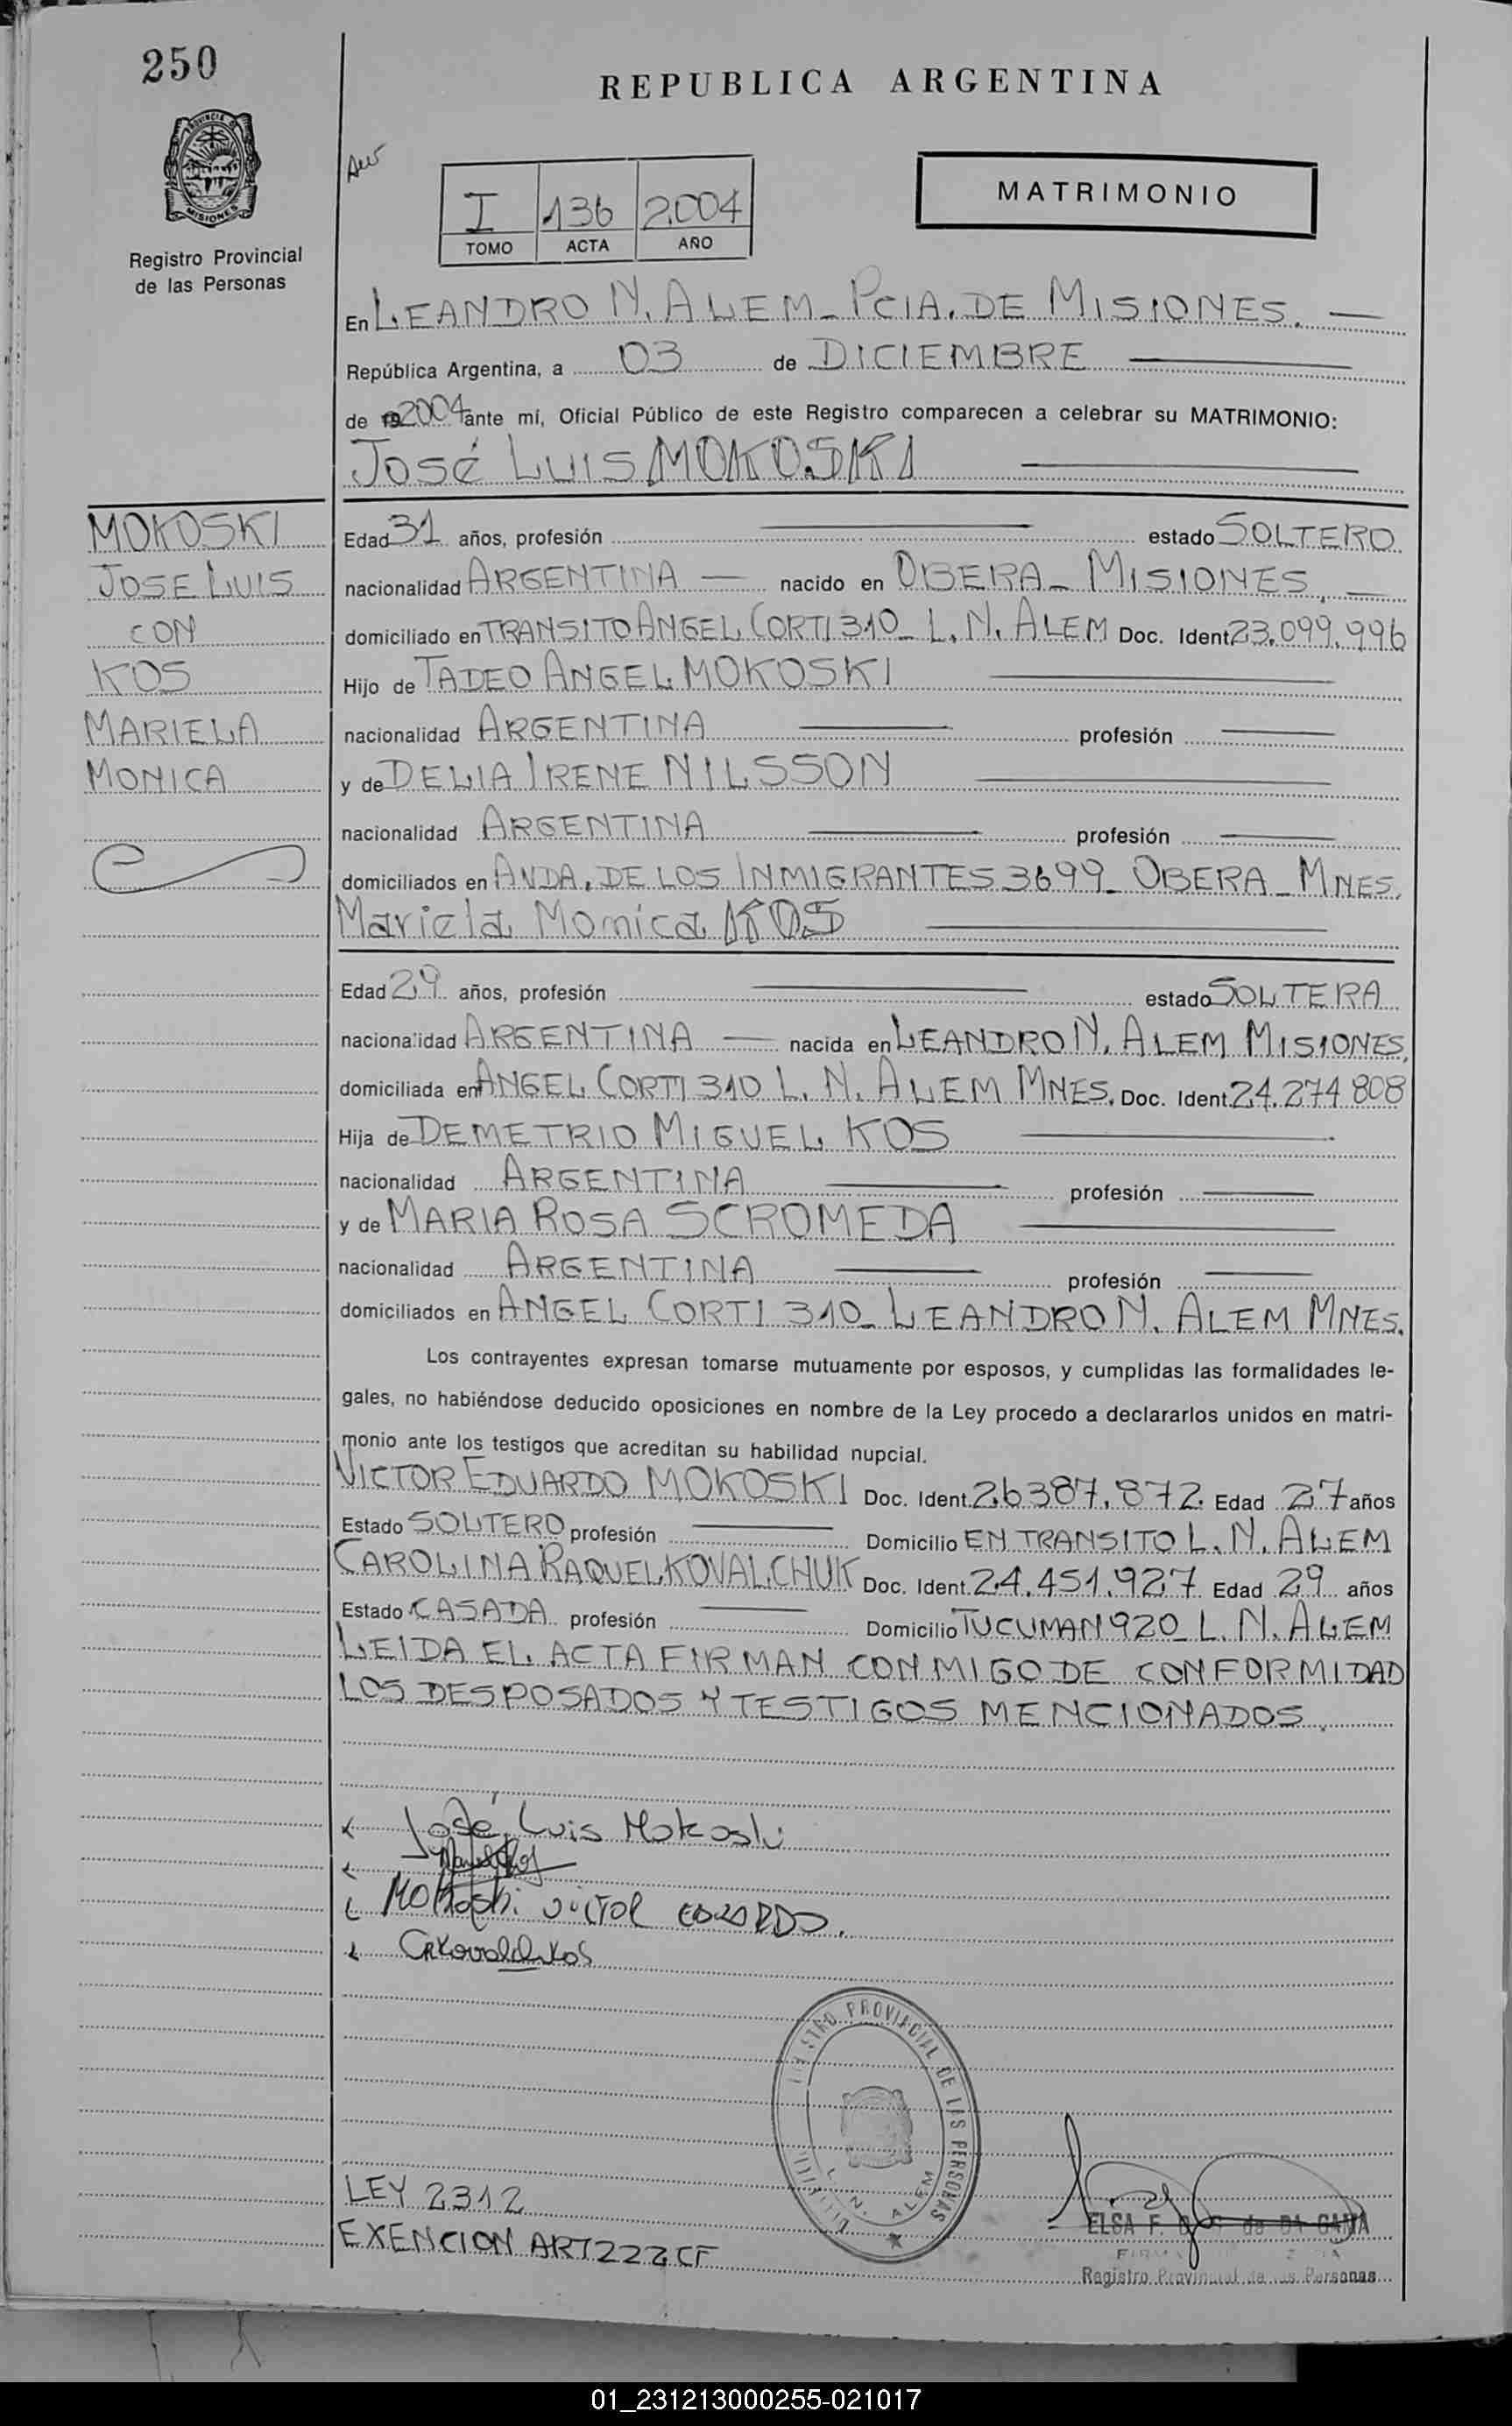 250
REPUBLICA ARGENTINA
PROVINCIA DE
MISIONES
Registro Provincial
de las Personas
I 136 2004
TOMO ACTA AÑO
MATRIMONIO
En LEANDRO N. ALEM - PCIA. DE MISIONES.
República Argentina, a 03 de DICIEMBRE
de 2004 ante mí, Oficial Público de este Registro comparecen a celebrar su MATRIMONIO:
José LUIS MOKOSKI
MOKOSKI
JOSE LUIS
CON
KOS
MARIELA
MONICA
Edad 31 años, profesión estado SOLTERO
nacionalidad ARGENTINA nacido en OBERA - MISIONES.
domiciliado en TRANSITO ANGEL CORTI 310 - L. N. ALEM Doc. Ident. 23.099.996
Hijo de TADEO ANGEL MOKOSKI
nacionalidad ARGENTINA profesión
y de DELIA IRENE NILSSON
nacionalidad ARGENTINA profesión
domiciliados en AVDA. DE LOS INMIGRANTES 3699 - OBERA - MNES.
Mariela Monica KOS
Edad 29 años, profesión estado SOLTERA
nacionalidad ARGENTINA nacida en LEANDRO N. ALEM MISIONES,
domiciliada en ANGEL CORTI 310 L. N. ALEM MNES. Doc. Ident. 24.274.808
Hija de DEMETRIO MIGUEL KOS
nacionalidad ARGENTINA profesión
y de MARIA ROSA SCROMEDA
nacionalidad ARGENTINA profesión
domiciliados en ANGEL CORTI 310 - LEANDRO N. ALEM MNES.
Los contrayentes expresan tomarse mutuamente por esposos, y cumplidas las formalidades le-
gales, no habiéndose deducido oposiciones en nombre de la Ley procedo a declararlos unidos en matri-
monio ante los testigos que acreditan su habilidad nupcial.
VICTOR EDUARDO MOKOSKI Doc. Ident. 26387.872 Edad 27 años
Estado SOLTERO profesión Domicilio EN TRANSITO L. N. ALEM
CAROLINA RAQUEL KOVALCHUK Doc. Ident. 24.451.927 Edad 29 años
Estado CASADA profesión Domicilio TUCUMAN 920 - L. N. ALEM
LEIDA EL ACTA FIRMAN CONMIGO DE CONFORMIDAD
LOS DESPOSADOS Y TESTIGOS MENCIONADOS.
José Luis Mokoski
Mokoski Victor EDUARDO.
PROVINCIAL DE LAS PERSONAS
L. N. ALEM
LEY 2312
EXENCION ART 222 CF
ELSA F. de DA GAMA
Registro Provincial de las Personas
01_231213000255-021017